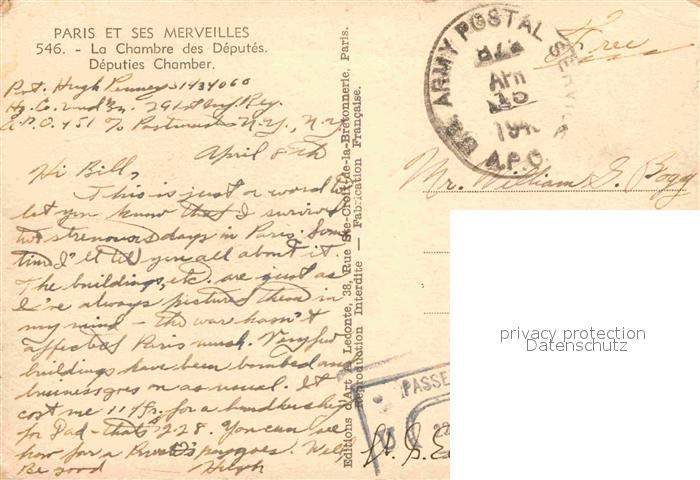 PARIS ET SES MERVEILLES
546. - La Chambre des Députés.
Députies Chamber.
Pvt. Hugh Penney 31434060
Hq. Co. 2nd Bn. 291st Inf. Reg.
A.P.O. 451 c/o Postmaster N.Y., N.Y.
April 8th
Hi Bill,
This is just a word to
let you know that I survived
two strenuous days in Paris. Some
time I'll tell you all about it.
The buildings, etc. are just as
I've always pictured them in
my mind - the war hasn't
affected Paris much. Very few
buildings have been bombed and
business goes on as usual. It
cost me 114 frs. for a handkerchief
for Dad - that's 2.28. You can see
how far a Private's pay goes. Well
Be good Hugh
Editions d'Art A. Leconte, 38, Rue Ste-Croix-de-la-Bretonnerie, Paris.
Reproduction Interdite — Fabrication Française.
U.S. ARMY POSTAL SERVICE
APR
15
194
A.P.O.
Free
Mr. William G. Bogg
privacy protection
Datenschutz
PASSE